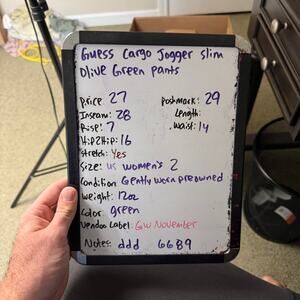 Guess Cargo Jogger Slim
Olive Green Pants
Price: 27 Poshmark: 29
Inseam: 28 Length:
Rise: 7 Waist: 14
Hip2Hip: 16
Stretch: Yes
Size: US Women's 2
Condition: Gently worn preowned
Weight: 12oz
Color: green
Vendoo Label: GW November
Notes: ddd 6689